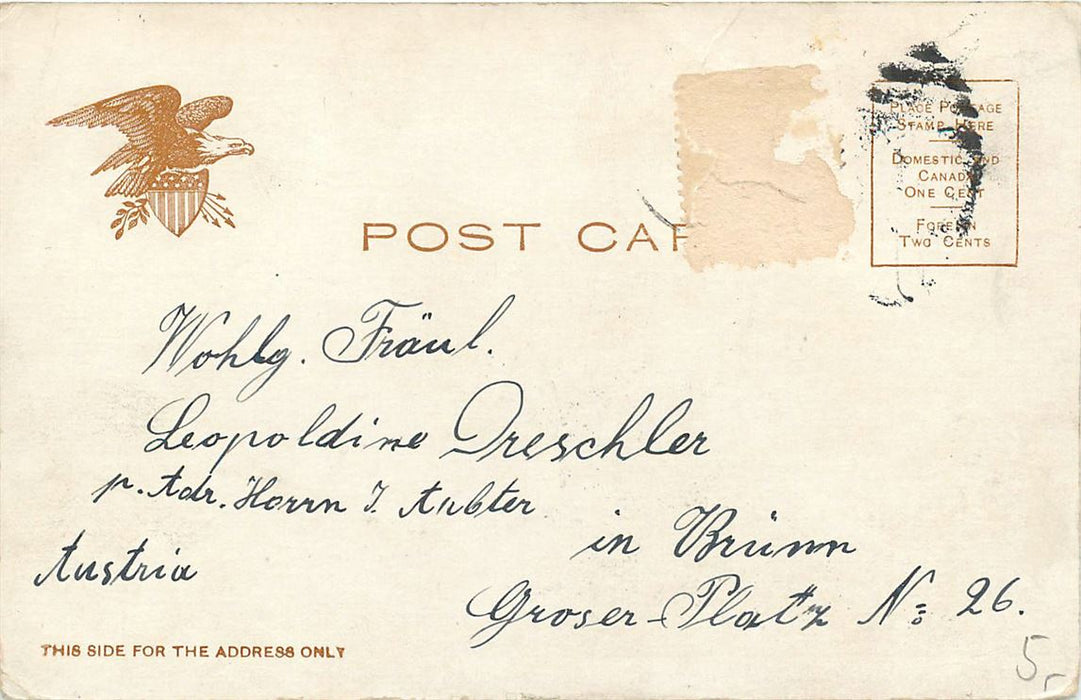 PLACE POSTAGE
STAMP HERE
DOMESTIC AND
CANADA
ONE CENT
FOREIGN
TWO CENTS
POST CAR
Wohlg. Fräul.
Leopoldine Dreschler
p. Adr. Herrn J.
in Brünn
Austria
Groser-Platz No 26.
THIS SIDE FOR THE ADDRESS ONLY
5,-